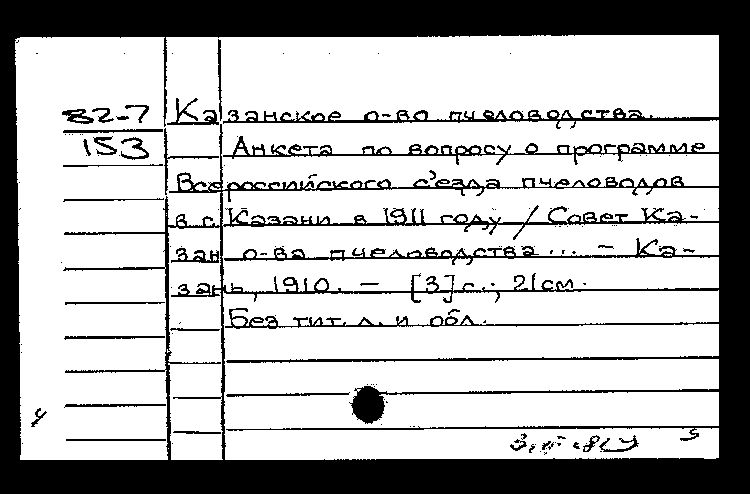 82-7 Казанское о-во пчеловодства.
153 Анкета по вопросу о программе
Всероссийского с'езда пчеловодов
в г. Казани в 1911 году / Совет Ка-
зан о-ва пчеловодства... – Ка-
зань, 1910. – [3] с.; 21 см.
Без тит. л. и обл.